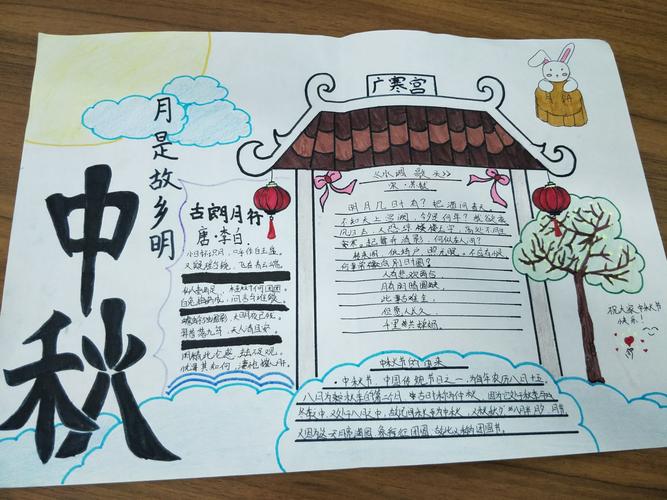 中秋
月是故乡明
广寒宫
古朗月行
唐·李白
小时不识月，呼作白玉盘
又疑瑶台镜，飞在青云端
白兔捣药成，问言与谁餐
羿昔落九乌，天人清且安
忧来其如何，凄怆摧心肝
《水调歌头》
宋·苏轼
明月几时有？把酒问青天
不知天上宫阙，今夕是何年？我欲乘
风归去，又恐琼楼玉宇，高处不胜
寒。起舞弄清影，何似在人间？
转朱阁，低绮户，照无眠，不应有恨
人有悲欢离合
月有阴晴圆缺
此事古难全
但愿人长久
千里共婵娟
中秋节的由来
·中秋节，中国传统节日之一，为每年农历八月十五，
八月为秋季的第二个月，古时称为仲秋，
民间称为中秋，又称秋夕
团圆，故此又称团圆节。
祝大家中秋节
快乐！